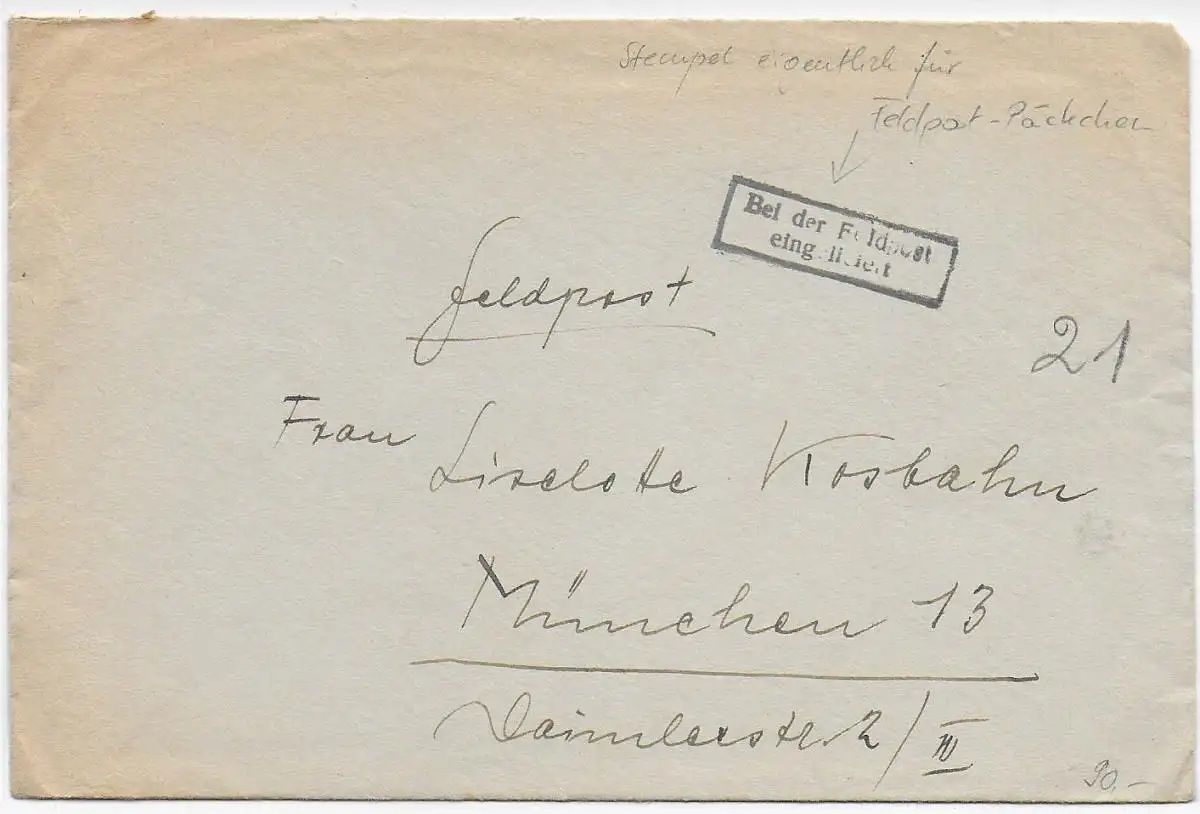 Stempel eigentlich für
Feldpost-Päckchen
Bei der Feldpost
eingeliefert
Feldpost
21
Frau Liselotte Kosbahn
München 13
Daimlerstr. 2/III
90.-